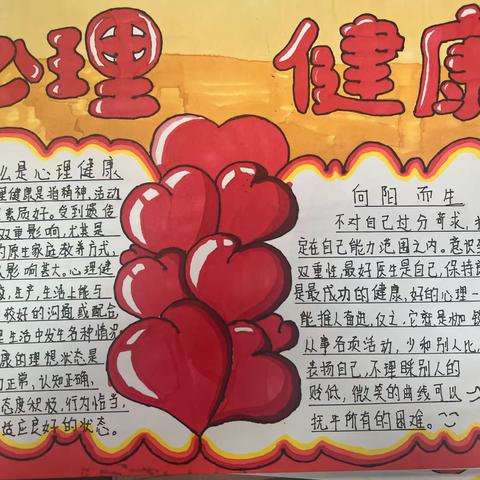 心理健康
什么是心理健康
理健康是指精神、活动
素质好。受到遗传
双重影响,尤其是
的原生家庭教养方式,
影响甚大。心理健
生产,生活上能与
较好的沟通或配合
是生活中发生各种情况
康的理想状态是
力正常,认知正确、
态度积极,行为恰当,
适应良好的状态。
向阳而生
不对自己过分苛求,
定在自己能力范围之内。意识
双重性,最好医生是自己,保持
是最成功的健康,好的心理一
能推人奋进,反之,它就是枷锁
从事各项活动,少和别人比,
表扬自己,不理睬别人的
贬低,微笑的曲线可以
抚平所有的困难。